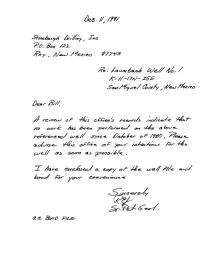 Dec. 11, 1991
Stanebaugh Drilling, Inc
P.O. Box 122
Roy, New Mexico 87743
Re: Launebach Well No. 1
K-11-17N-25E
San Miguel County, New Mexico
Dear Bill,
A review of this office's records indicate that
no work has been performed on the above
referenced well since October of 1985. Please
advise this office of your intentions for the
well as soon as possible.
I have enclosed a copy of the well file and
bond for your convenience
Sincerely
Sr. Pet. Geol.
cc Bond File